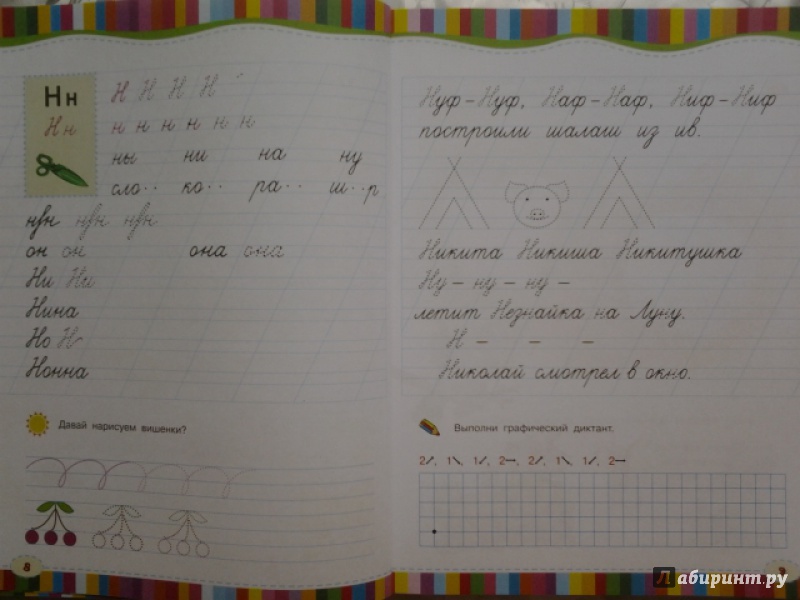 Нн
Н Н Н Н
Нн
н н н н н н
ны ни на ну
сло·· ко·· ра·· ш··р
нвн нвн нвн
он он она она
Ни Ни
Нина
Но Н
Нонна
Давай нарисуем вишенки?
8
Нуф-Нуф, Наф-Наф, Ниф-Ниф
построили шалаш из ив.
Никита Никиша Никитушка
Ну – ну – ну –
летит Незнайка на Луну.
Н – – –
Николай смотрел в окно.
Выполни графический диктант.
2↗, 1↘, 1↙, 2→, 2↗, 1↘, 1↙, 2→
Лабиринт.ру